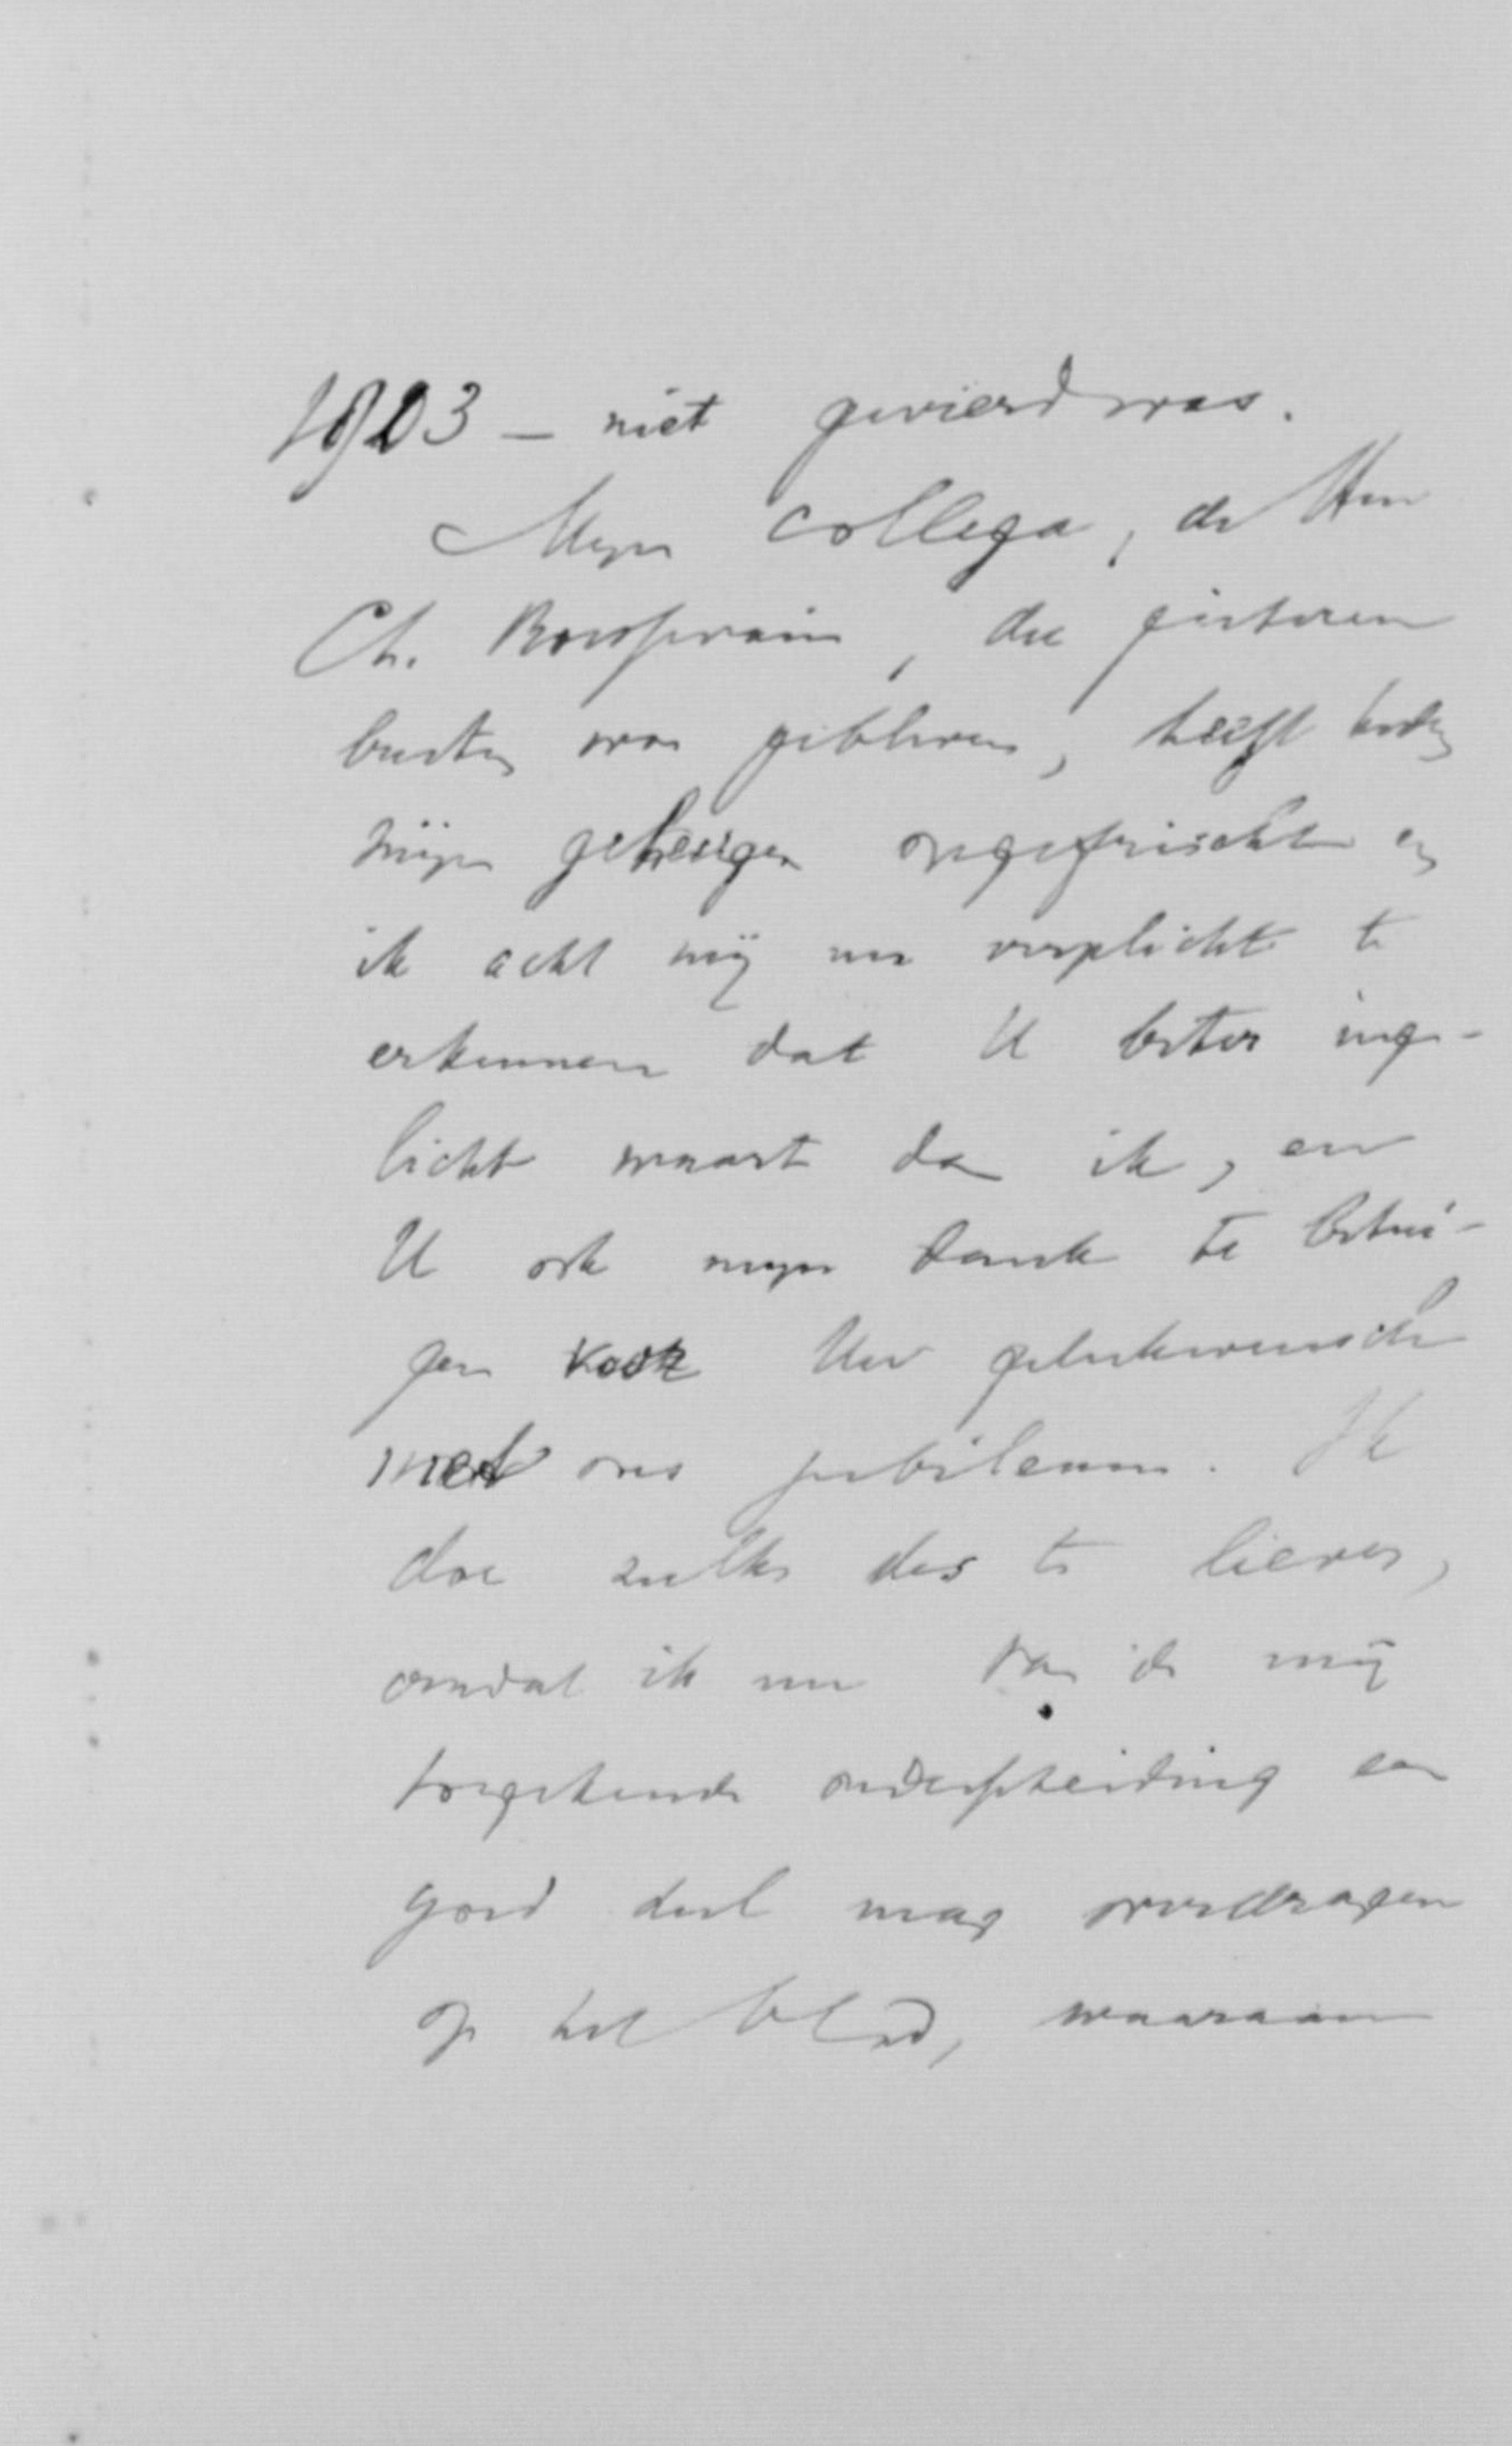 1903 — niet gevierd was.
Mijn collega, de Heer
Ch. Boissevain, die gisteren
buiten was gebleven, heeft heden
mijn geheugen opgefrischt en
ik acht mij nu verplicht te
erkennen dat U beter inge-
licht waart dan ik, en
U ook mijn dank te betui-
gen voor Uw gelukwensch
met ons jubileum. Ik
doe zulks des te liever,
omdat ik nu van de mij
toegekende onderscheiding een
goed deel mag overdragen
op het blad, waaraan